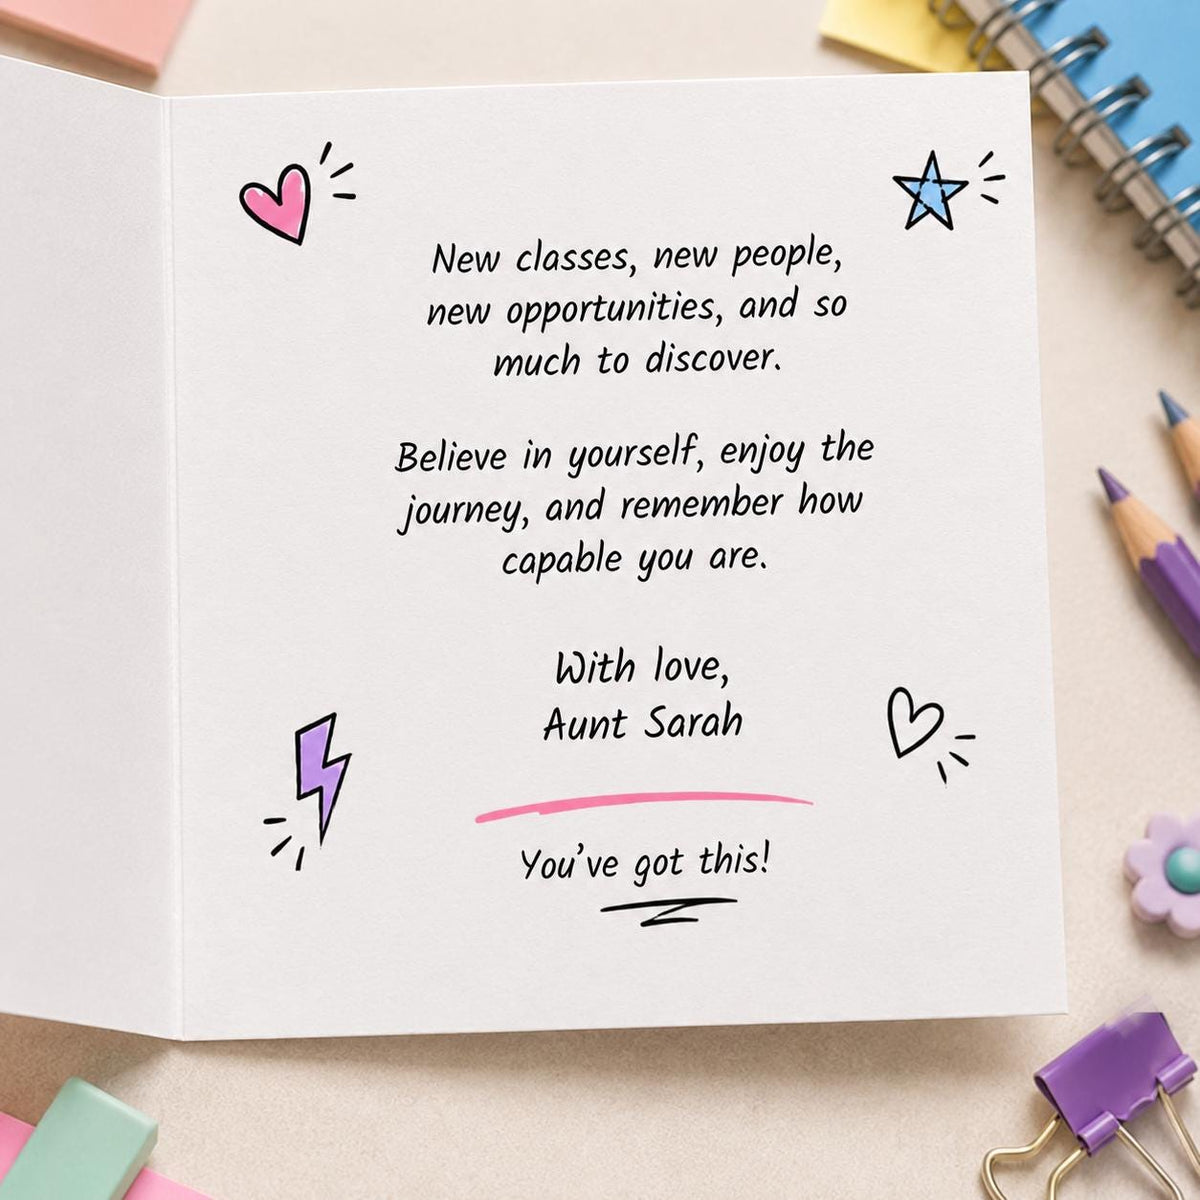 New classes, new people,
new opportunities, and so
much to discover.
Believe in yourself, enjoy the
journey, and remember how
capable you are.
With love,
Aunt Sarah
You've got this!